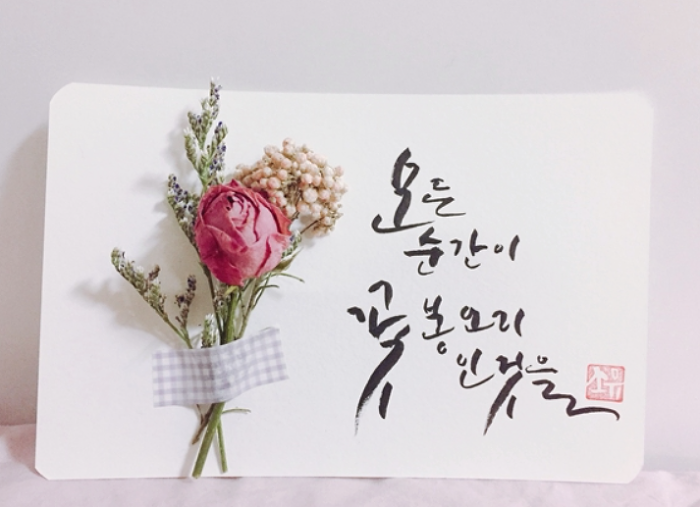 모든
순간이
꽃봉오리
인것을